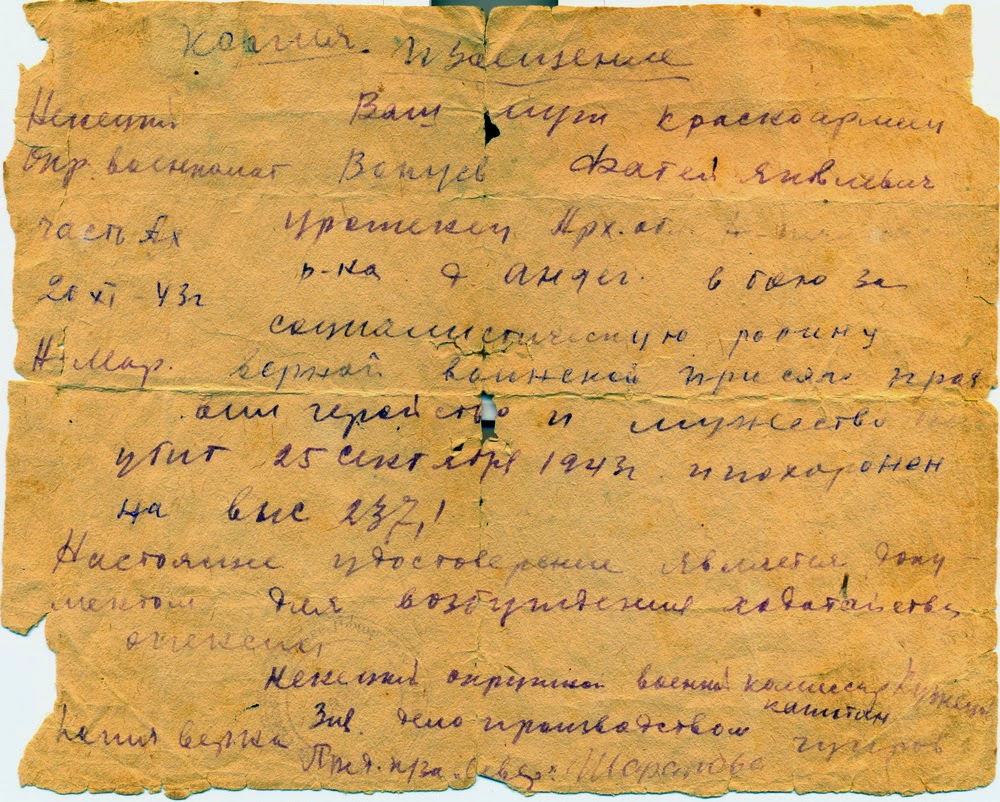 Копия. Извещение
Ненецкий Ваш муж красноармеец
Окр. военкомат Вануев Фатей Яковлевич
часть Ах уроженец Арх. обл.
20 XI - 43г р-на д Андег. в бою за
социалистическую родину
Н-Мар. верной воинской присяге прояв
вши геройство и мужество
убит 25 сентября 1943г. и похоронен
на выс 237,1
Настоящие удостоверение является доку
ментом для возбуждения ходатайства
о пенсии
Ненецкий окружной военный комиссар
капитан
Зав. дело производством
Копия верна
Пред. к-за "Север" Шарапова